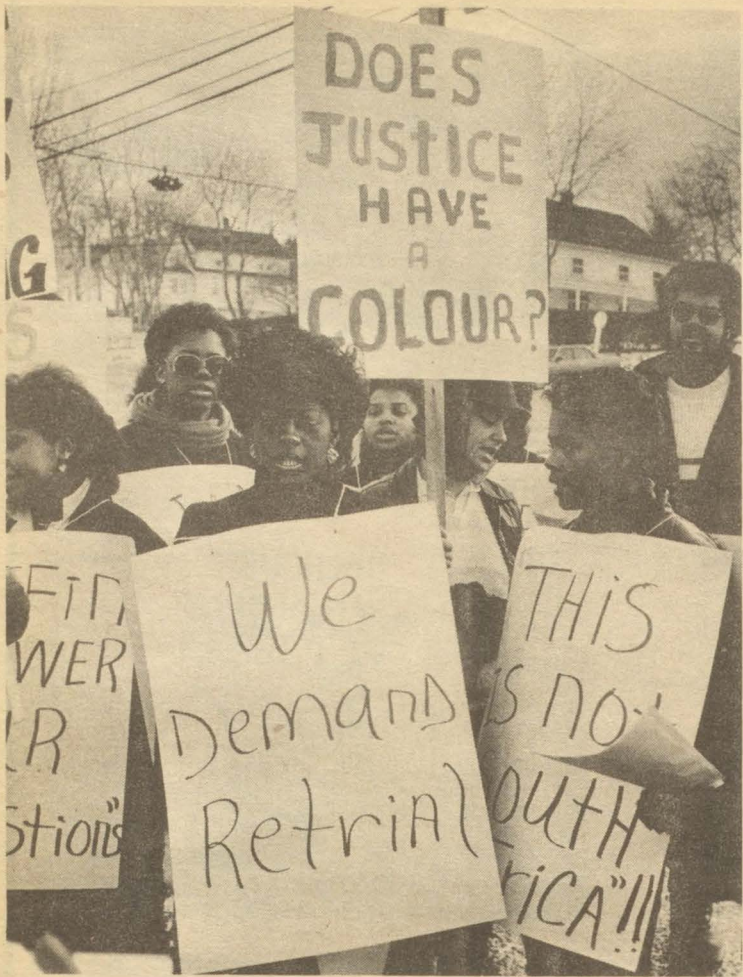 DOES
JUSTICE
HAVE
A
COLOUR?
G
S
FiN
WER
R
stions"
We
DemanD
RetriAl
THiS
iS not
OUtH
riCA"!!